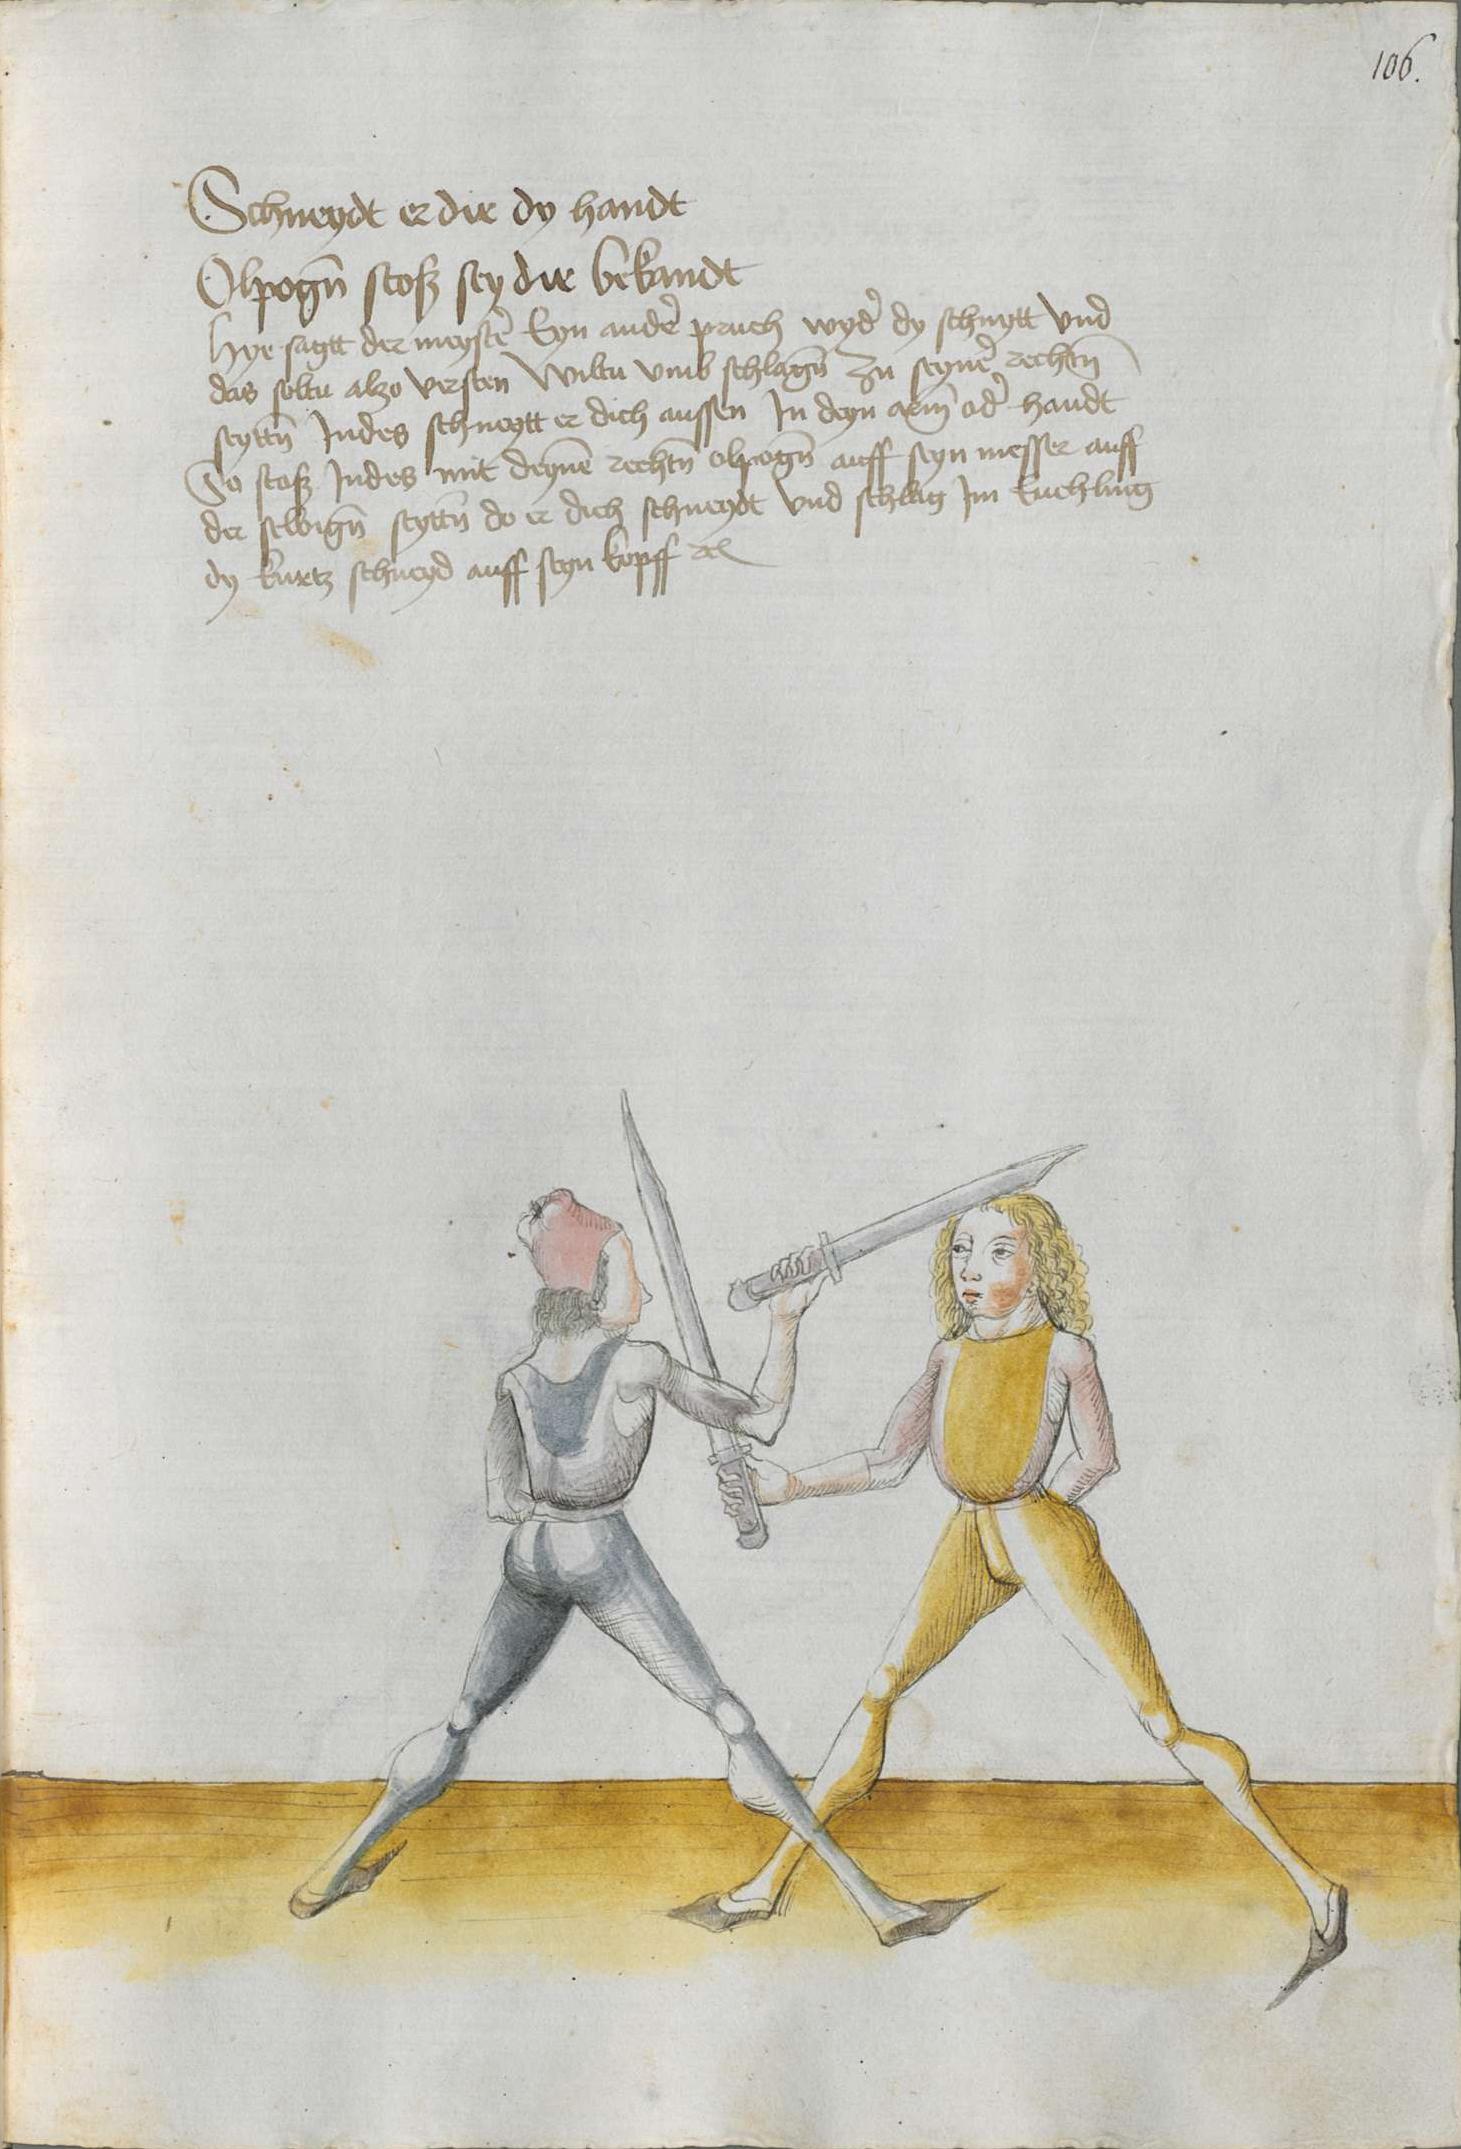 106.
Schneydt er dir dy handt
Olpogn̄ stosß sey dir bekandt
Hye sagtt der meyster̄ Eyn ander̄ pruch wyder̄ dy schnytt vnd
das soltu alzo versten Wiltu vmb schlagn̄ zu seyner̄ rechtn̄
seyttn̄ Indes schneytt er dich aussen In deyn arm̄ oder̄ handt
So stosß Indes mit deynē rechtn̄ olpogn̄ auff seyn messer auff
der selbign̄ seyttn̄ do er dich schneydt vnd schlag Im
dy kurtz schneyd auff seyn kopff